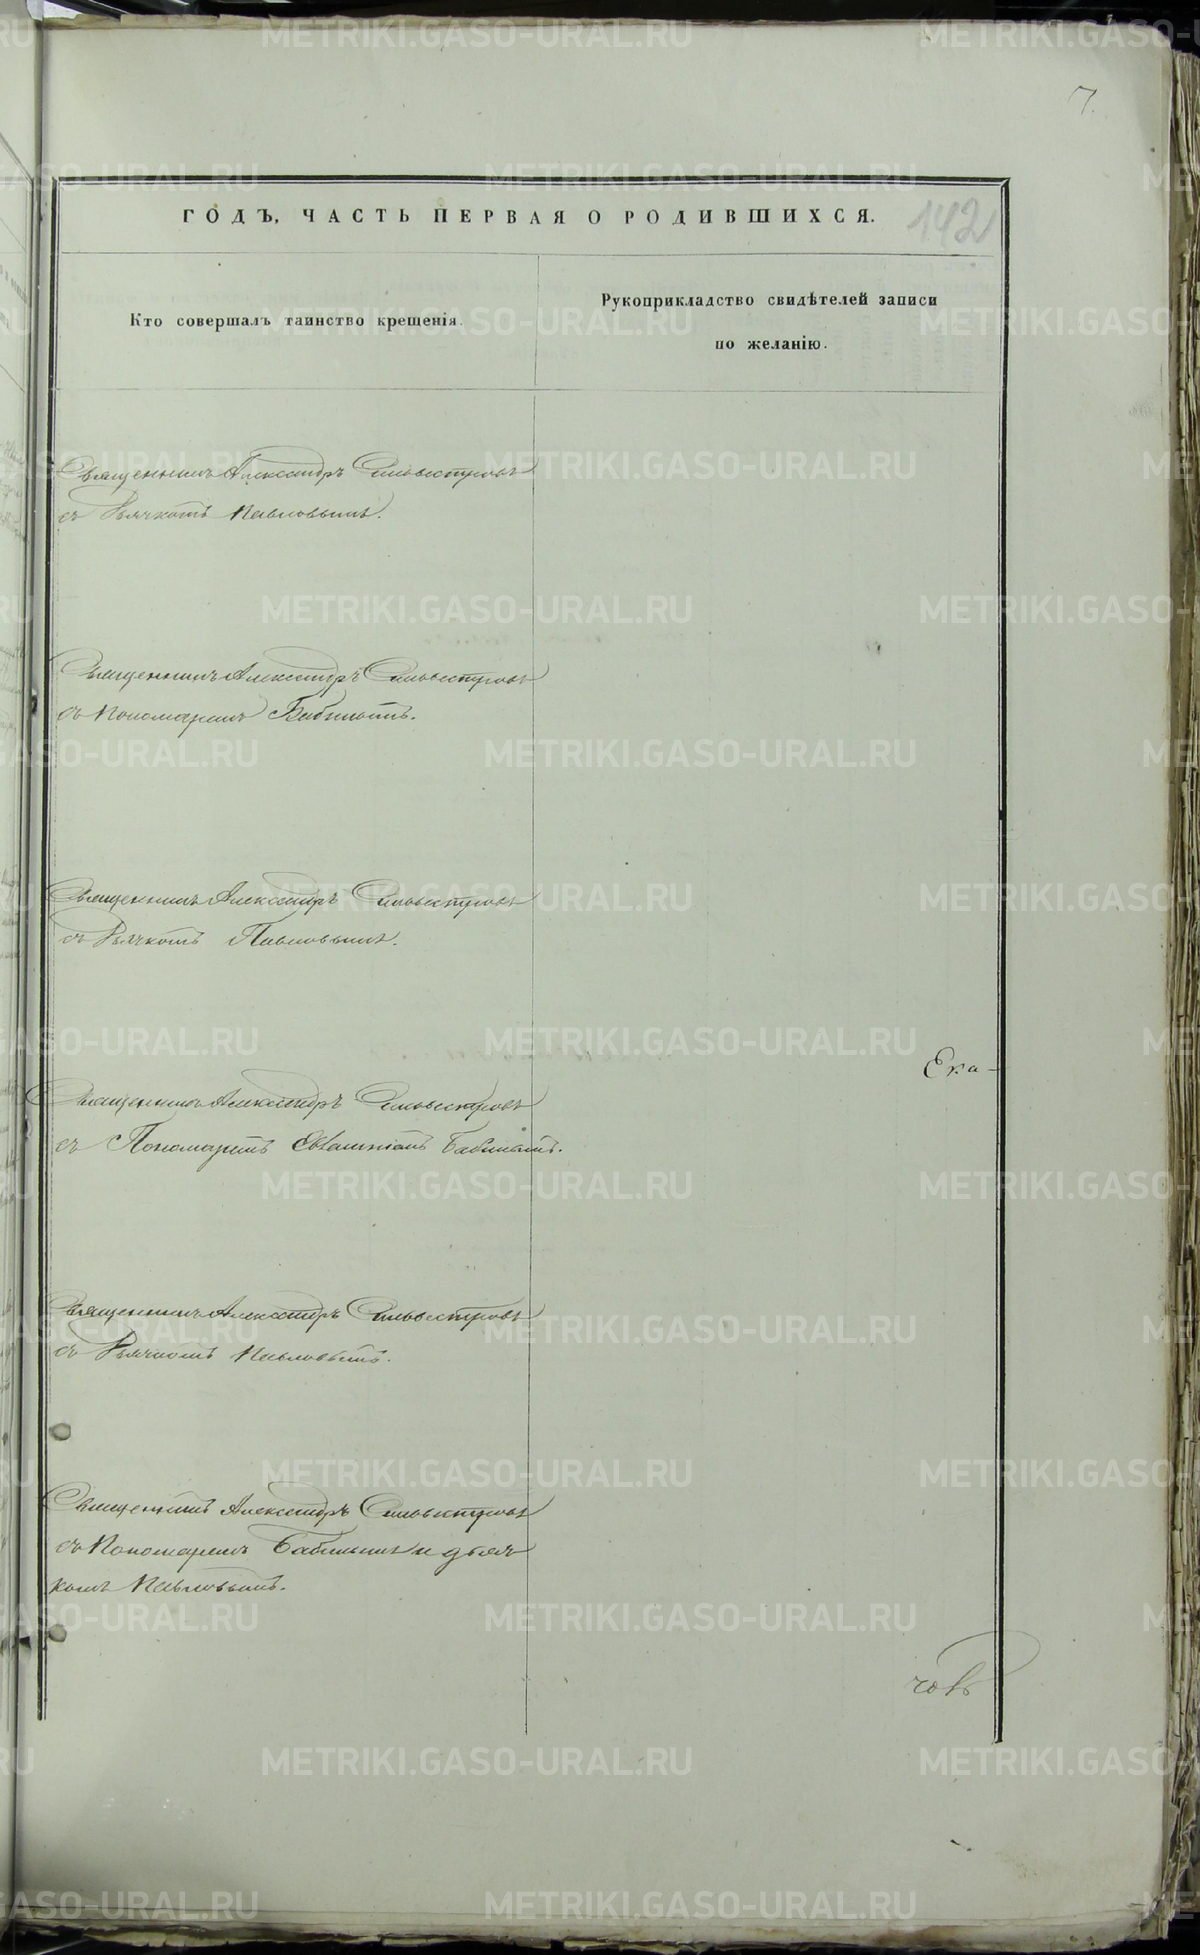 7.
ГОДЪ, ЧАСТЬ ПЕРВАЯ О РОДИВШИХСЯ.
142
Кто совершалъ таинство крещенія.
Рукоприкладство свидѣтелей записи
по желанію.
Священникъ Александръ Сильвестровъ
съ Дьячкомъ Павловымъ.
Священникъ Александръ Сильвестровъ
съ Пономаремъ Бабинымъ.
Священникъ Александръ Сильвестровъ
съ Дьячкомъ Павловымъ.
Ека-
Священникъ Александръ Сильвестровъ
съ Пономаремъ Бабинымъ.
Священникъ Александръ Сильвестровъ
съ Дьячкомъ Павловымъ.
Священникъ Александръ Сильвестровъ
съ Пономаремъ Бабинымъ и дьяч-
комъ Павловымъ.
METRIKI.GASO-URAL.RU